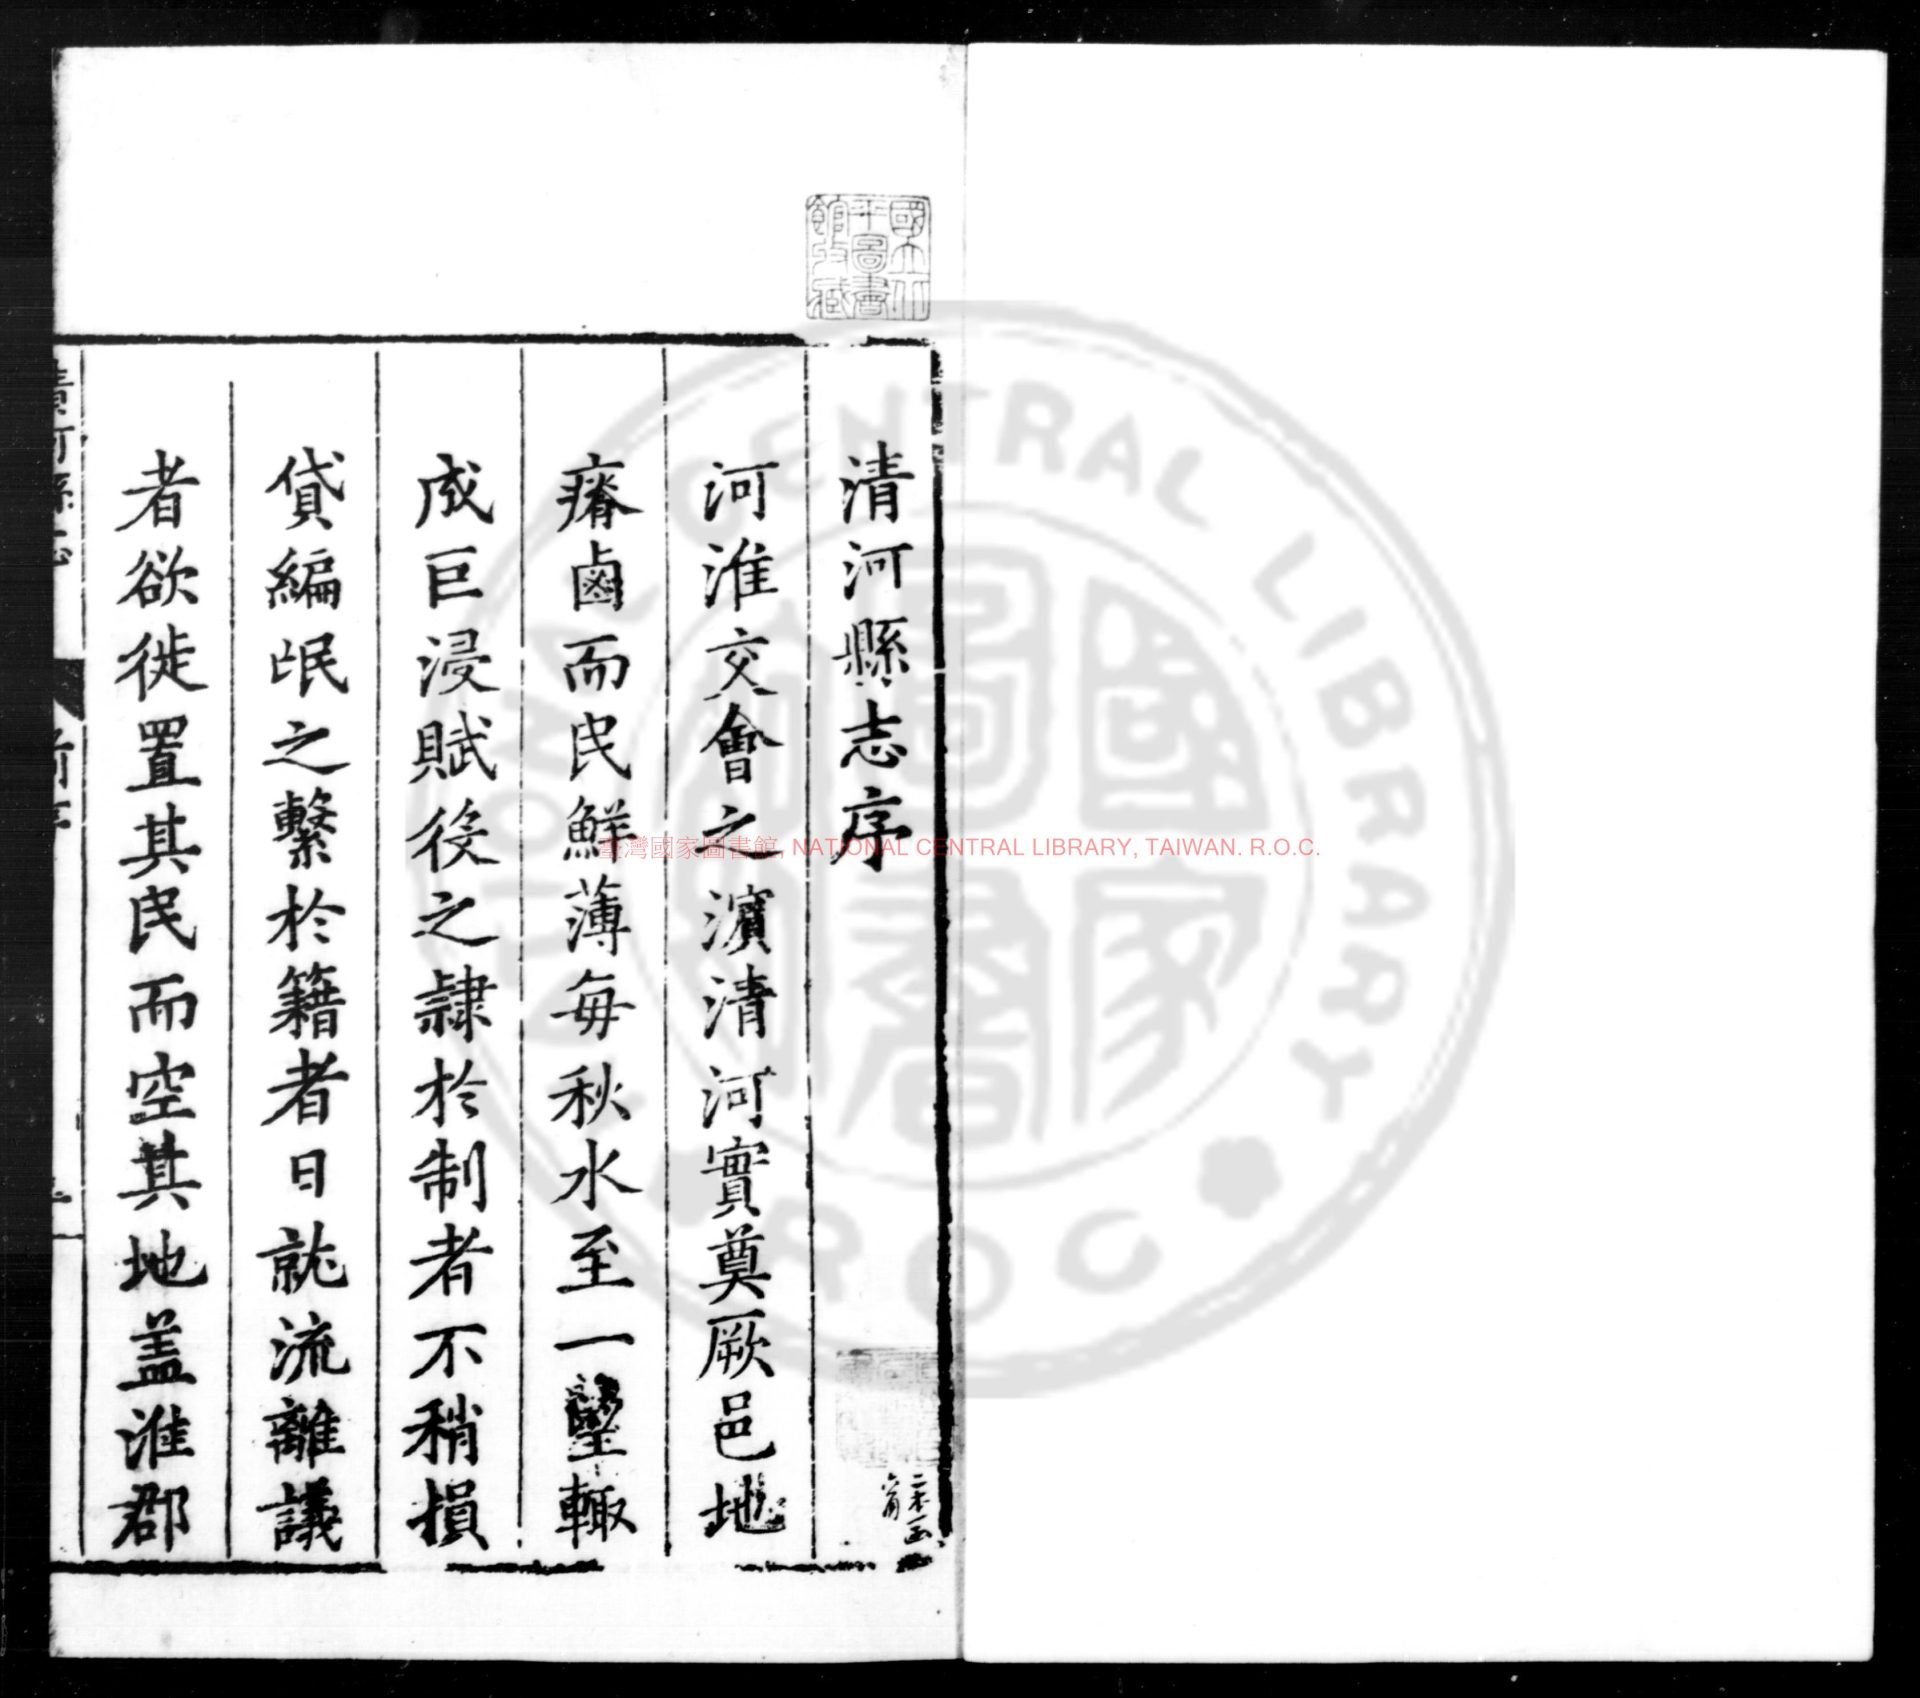 國立北平圖書館收藏
清河縣志序
河淮交會之濵清河實奠厥邑地
瘠鹵而民鮮薄每秋水至一壑輙
成巨浸賦役之隷於制者不稍損
貸編氓之繫於籍者日就流離議
者欲徙置其民而空其地盖淮郡
清河縣志
前序
臺灣國家圖書館, NATIONAL CENTRAL LIBRARY, TAIWAN. R.O.C.
NATIONAL CENTRAL LIBRARY
R.O.C
國家圖書